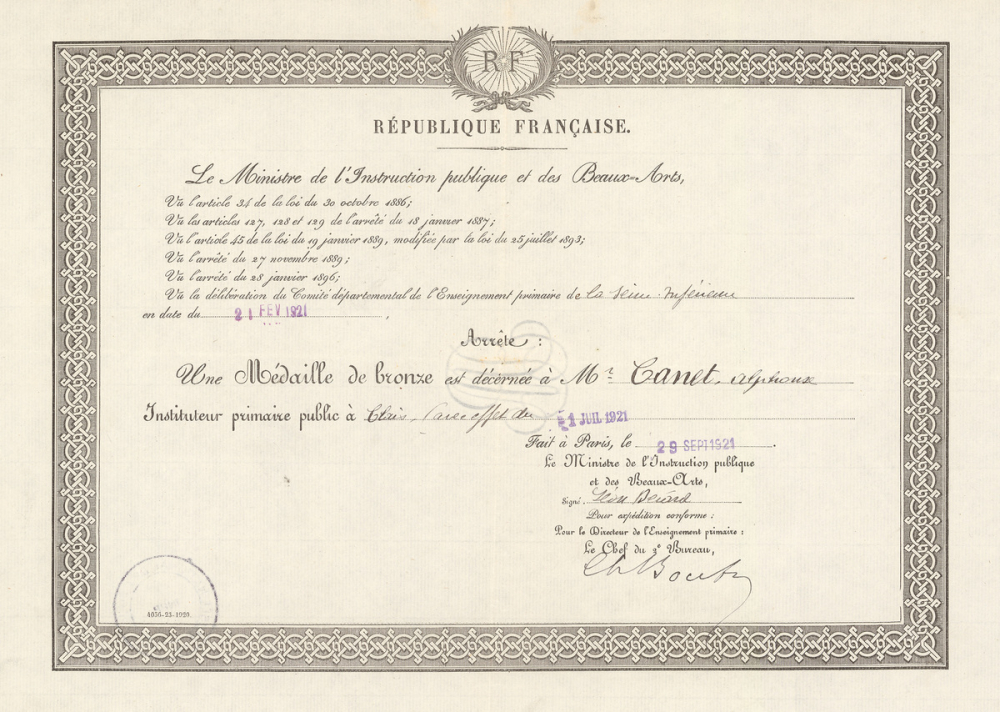 RF
RÉPUBLIQUE FRANÇAISE.
Le Ministre de l'Instruction publique et des Beaux-Arts,
Vu l'article 34 de la loi du 30 octobre 1886;
Vu les articles 127, 128 et 129 de l'arrêté du 18 janvier 1887;
Vu l'article 45 de la loi du 19 janvier 1889, modifiée par la loi du 25 juillet 1893;
Vu l'arrêté du 27 novembre 1889;
Vu l'arrêté du 28 janvier 1896;
Vu la délibération du Comité départemental de l'Enseignement primaire de la Seine-Inférieure
en date du 21 FEV 1921,
Arrête :
Une Médaille de bronze est décernée à Mr. Canet, Alphonse
Instituteur primaire public à (avec effet du 21 JUIL 1921
Fait à Paris, le 29 SEPT 1921.
Le Ministre de l'Instruction publique
et des Beaux-Arts,
Signé: Léon Bérard
Pour expédition conforme :
Pour le Directeur de l'Enseignement primaire :
Le Chef du 3e Bureau,
4656-23-1920.